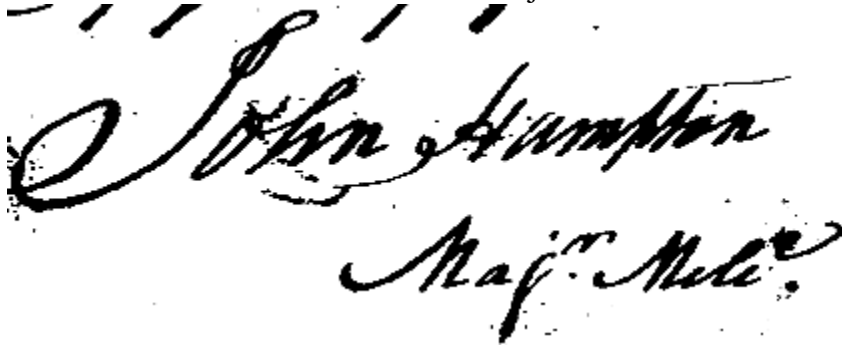 John Hampton
Majr. Mile.